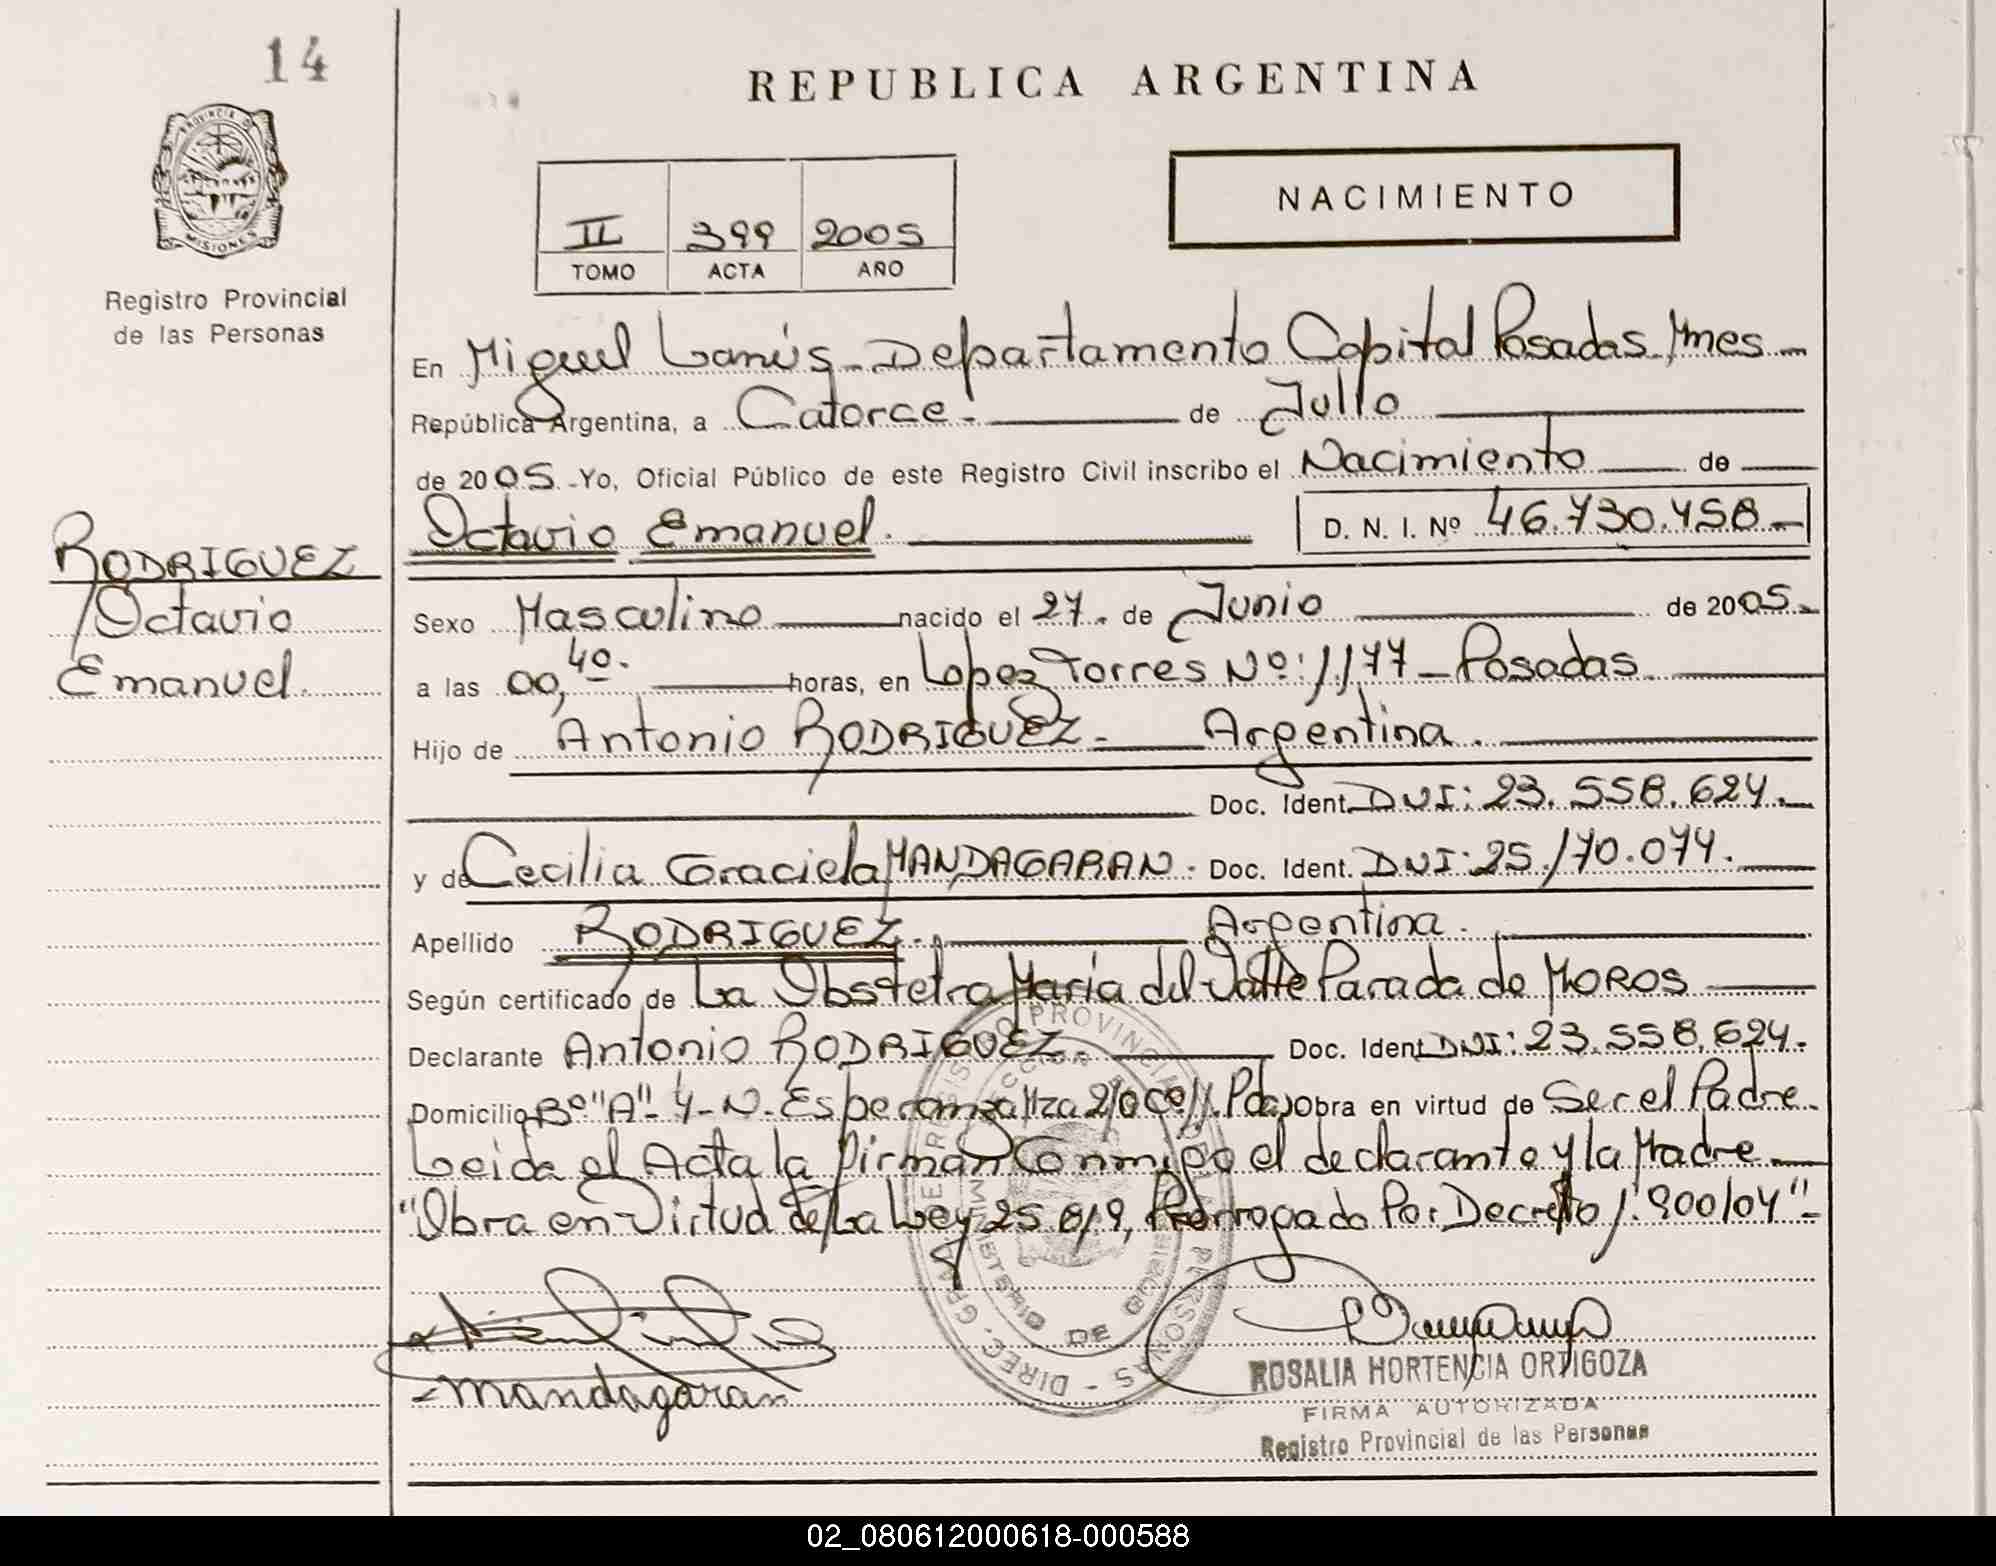 14
REPUBLICA ARGENTINA
PROVINCIA D
MISIONES
Registro Provincial
de las Personas
NACIMIENTO
II 399 2005
TOMO ACTA AÑO
En Miguel Lanús - Departamento Capital Posadas Mnes
República Argentina, a Catorce. de Julio
de 2005. Yo, Oficial Público de este Registro Civil inscribo el Nacimiento de
Octavio Emanuel. D. N. I. Nº 46.730.458
RODRIGUEZ
Octavio
Emanuel.
Sexo Masculino nacido el 27. de Junio de 2005.
a las 00,40. horas, en Lopez Torres Nº: 1177 - Posadas
Hijo de Antonio RODRIGUEZ - Argentina.
Doc. Ident. DNI: 23.558.624.
y de Cecilia Graciela MANDAGARAN. Doc. Ident. DNI: 25.170.074.
Apellido RODRIGUEZ. Argentina.
Según certificado de La Obstetra María del Valle Parada de MOROS
Declarante Antonio RODRIGUEZ Doc. Ident DNI: 23.558.624.
Domicilio Bº "A" 4 - N. Esperanza Mza Pdas, obra en virtud de Ser el Padre
Leida el Acta la firman Conmigo el declarante y la Madre
"Obra en Virtud de La Ley 25.819, Prorrogado Por Decreto 1.900/04"
Mandagaran
ROSALIA HORTENCIA ORTIGOZA
FIRMA AUTORIZADA
Registro Provincial de las Personas
02_080612000618-000588